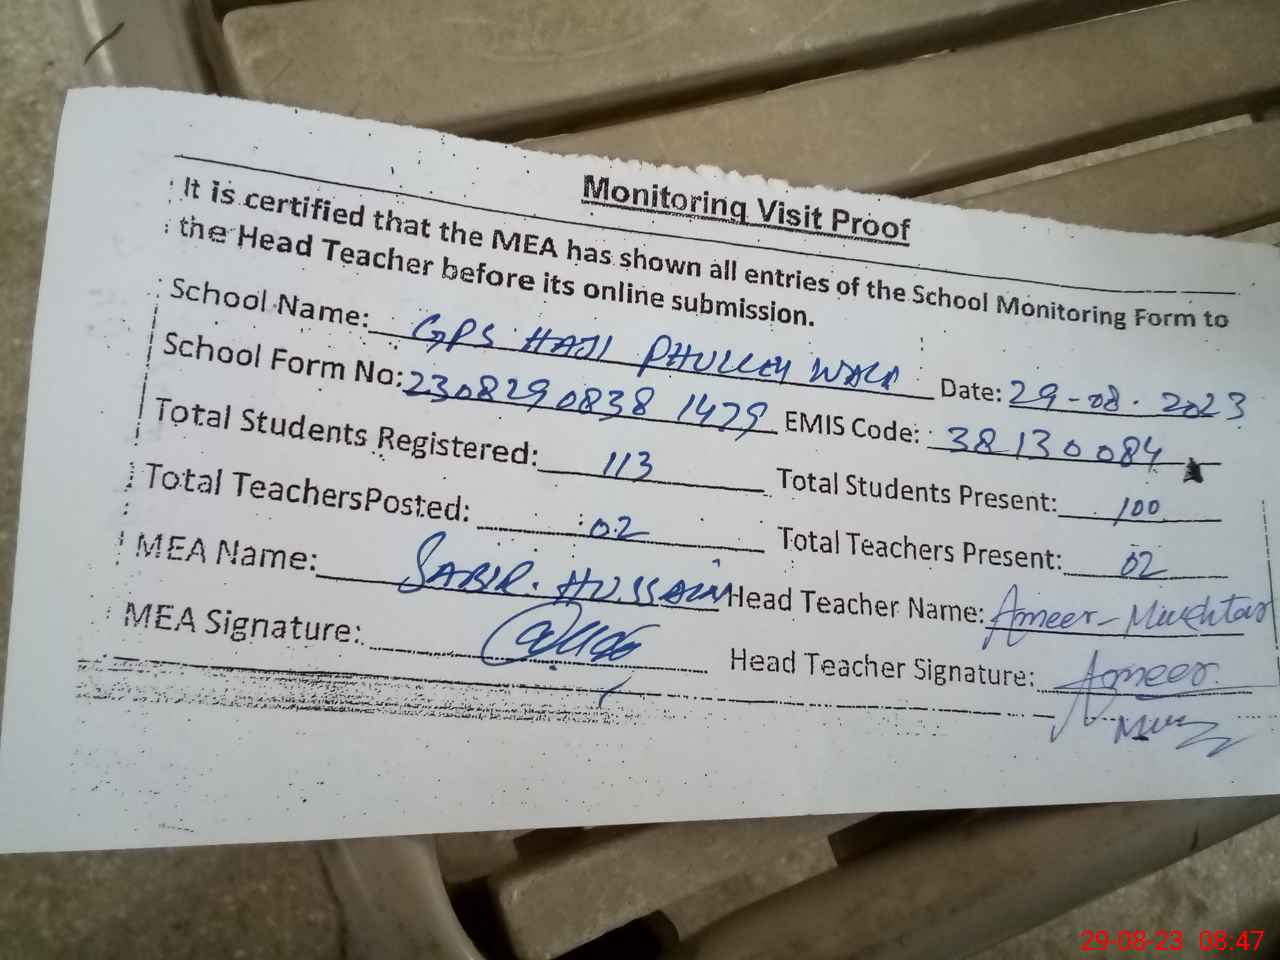 Monitoring Visit Proof
It is certified that the MEA has shown all entries of the School Monitoring Form to
the Head Teacher before its online submission.
School Name: GPS HAJI PHULLEY WALA Date: 29-08-2023
School Form No: 2308290838 1479 EMIS Code: 38130084
Total Students Registered: 113 Total Students Present: 100
Total TeachersPosted: 02 Total Teachers Present: 02
MEA Name: SABIR. HUSSAIN Head Teacher Name: Ameer-Mukhtar
MEA Signature: Head Teacher Signature: Ameer
29-08-23 08:47